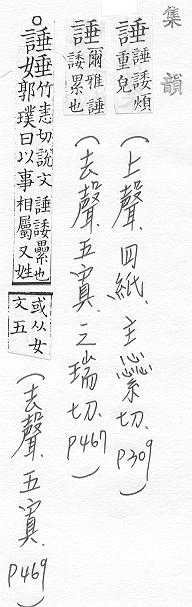 集韻
誰諉煩重皃
(上聲.四紙.主繠切.P309)
諈
爾雅諈諉累也
(去聲.五寘.之瑞切.P467)
○諈娷竹恚切說文諈諉纍也郭璞曰以事相屬又姓或从女文五
(去聲.五寘.P469)